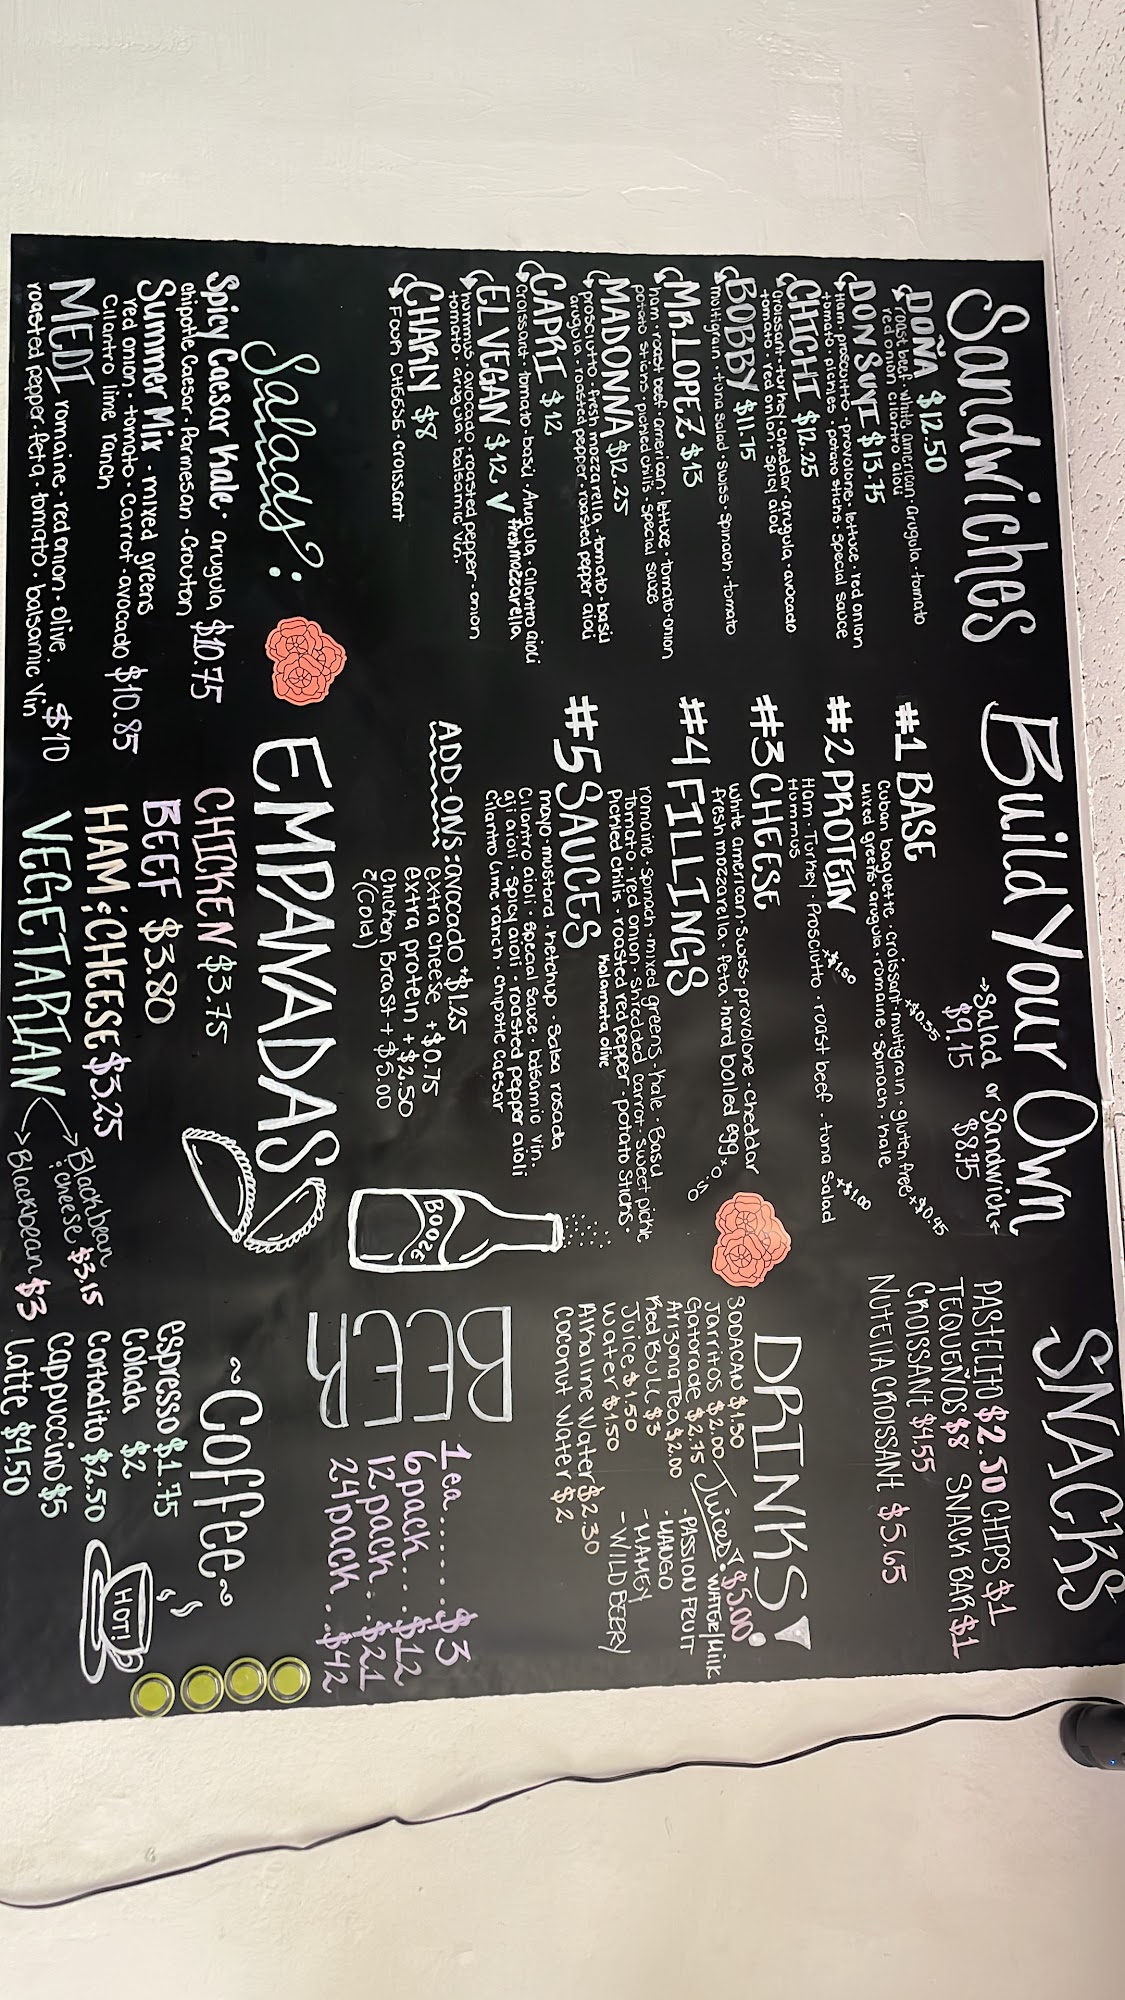 Sandwiches
DOÑA $12.50
roast beef · white american · arugula · tomato
red onion cilantro aioli
DON SUYI $13.75
Ham · prosciutto · provolone · lettuce · red onion
tomato · pickles · potato sticks · special sauce
CHICHI $12.25
croissant · turkey · cheddar · arugula · avocado
tomato · red onion · spicy aioli
BOBBY $11.75
multigrain · tuna salad · swiss · spinach · tomato
MR. LOPEZ $13
ham · roast beef · american · lettuce · tomato · onion
potato sticks · pickled chilis · special sauce
MADONNA $12.25
prosciutto · fresh mozzarella · tomato · basil
arugula · roasted pepper · roasted pepper aioli
CAPRI $12
croissant · tomato · basil · Arugula · cilantro aioli
fresh mozzarella
EL VEGAN $12 V
hummus · avocado · roasted pepper · onion
tomato · arugula · balsamic vin.
CHARLY $8
Four CHEESE · croissant
Salads:
Spicy Caesar Kale · arugula $10.75
chipotle Caesar · Parmesan · Crouton
Summer Mix · mixed greens
red onion · tomato · carrot · avocado $10.85
Cilantro lime ranch
MEDI romaine · red onion · olive · $10
roasted pepper · feta · tomato · balsamic vin
Build Your Own
→Salad or Sandwich←
$9.15 $8.75
#1 BASE
+$0.35
Cuban baguette · croissant · multigrain · gluten free +$0.45
mixed greens · arugula · romaine · spinach · kale
#2 PROTEIN
+$1.50
+$1.00
Ham · Turkey · Prosciutto · roast beef · tuna salad
Hummus
#3 CHEESE
white american · swiss · provolone · cheddar
fresh mozzarella · feta, hard boiled egg
#4 FILLINGS
romaine · spinach · mixed greens · kale · Basil
Tomato · red onion · shredded carrot · sweet pickle
Pickled chilis · roasted red pepper · potato sticks ·
kalamata olive
#5 SAUCES
mayo · mustard · ketchup · salsa rosada
Cilantro aioli · special sauce · balsamic vin.
aji aioli · spicy aioli · roasted pepper aioli
cilantro lime ranch · chipotle caesar
ADD-ONS: avocado +$1.25
extra cheese +$0.75
extra protein + $2.50
Chicken Breast + $5.00
(Cold)
EMPANADAS
CHICKEN $3.75
BEEF $3.80
HAM & CHEESE $3.25
VEGETARIAN
→ Black bean & cheese $3.15
→ Black bean $3
BOOZE
SNACKS
PASTELITO $2.50 CHIPS $1
TEQUEÑOS $8 SNACK BAR $1
CROISSANT $4.55
NUTELLA CROISSANT $5.65
DRINKS
SODA CAN $1.50
Jarritos $2.00
Gatorade $2.75
Arizona Tea $2.00
Red Bull $3
Juice $1.50
Water $1.50
Alkaline Water $2.30
Coconut Water $2
Juices $5.00
WATER/Milk
- PASSION FRUIT
- MANGO
- MAMEY
- WILD BERRY
BEER
1 ea....... $3
6 pack... $12
12 pack.. $21
24 pack.. $42
~Coffee~
espresso $1.75
Colada $2
Cortadito $2.50
Cappuccino $5
Latte $4.50
HOT!